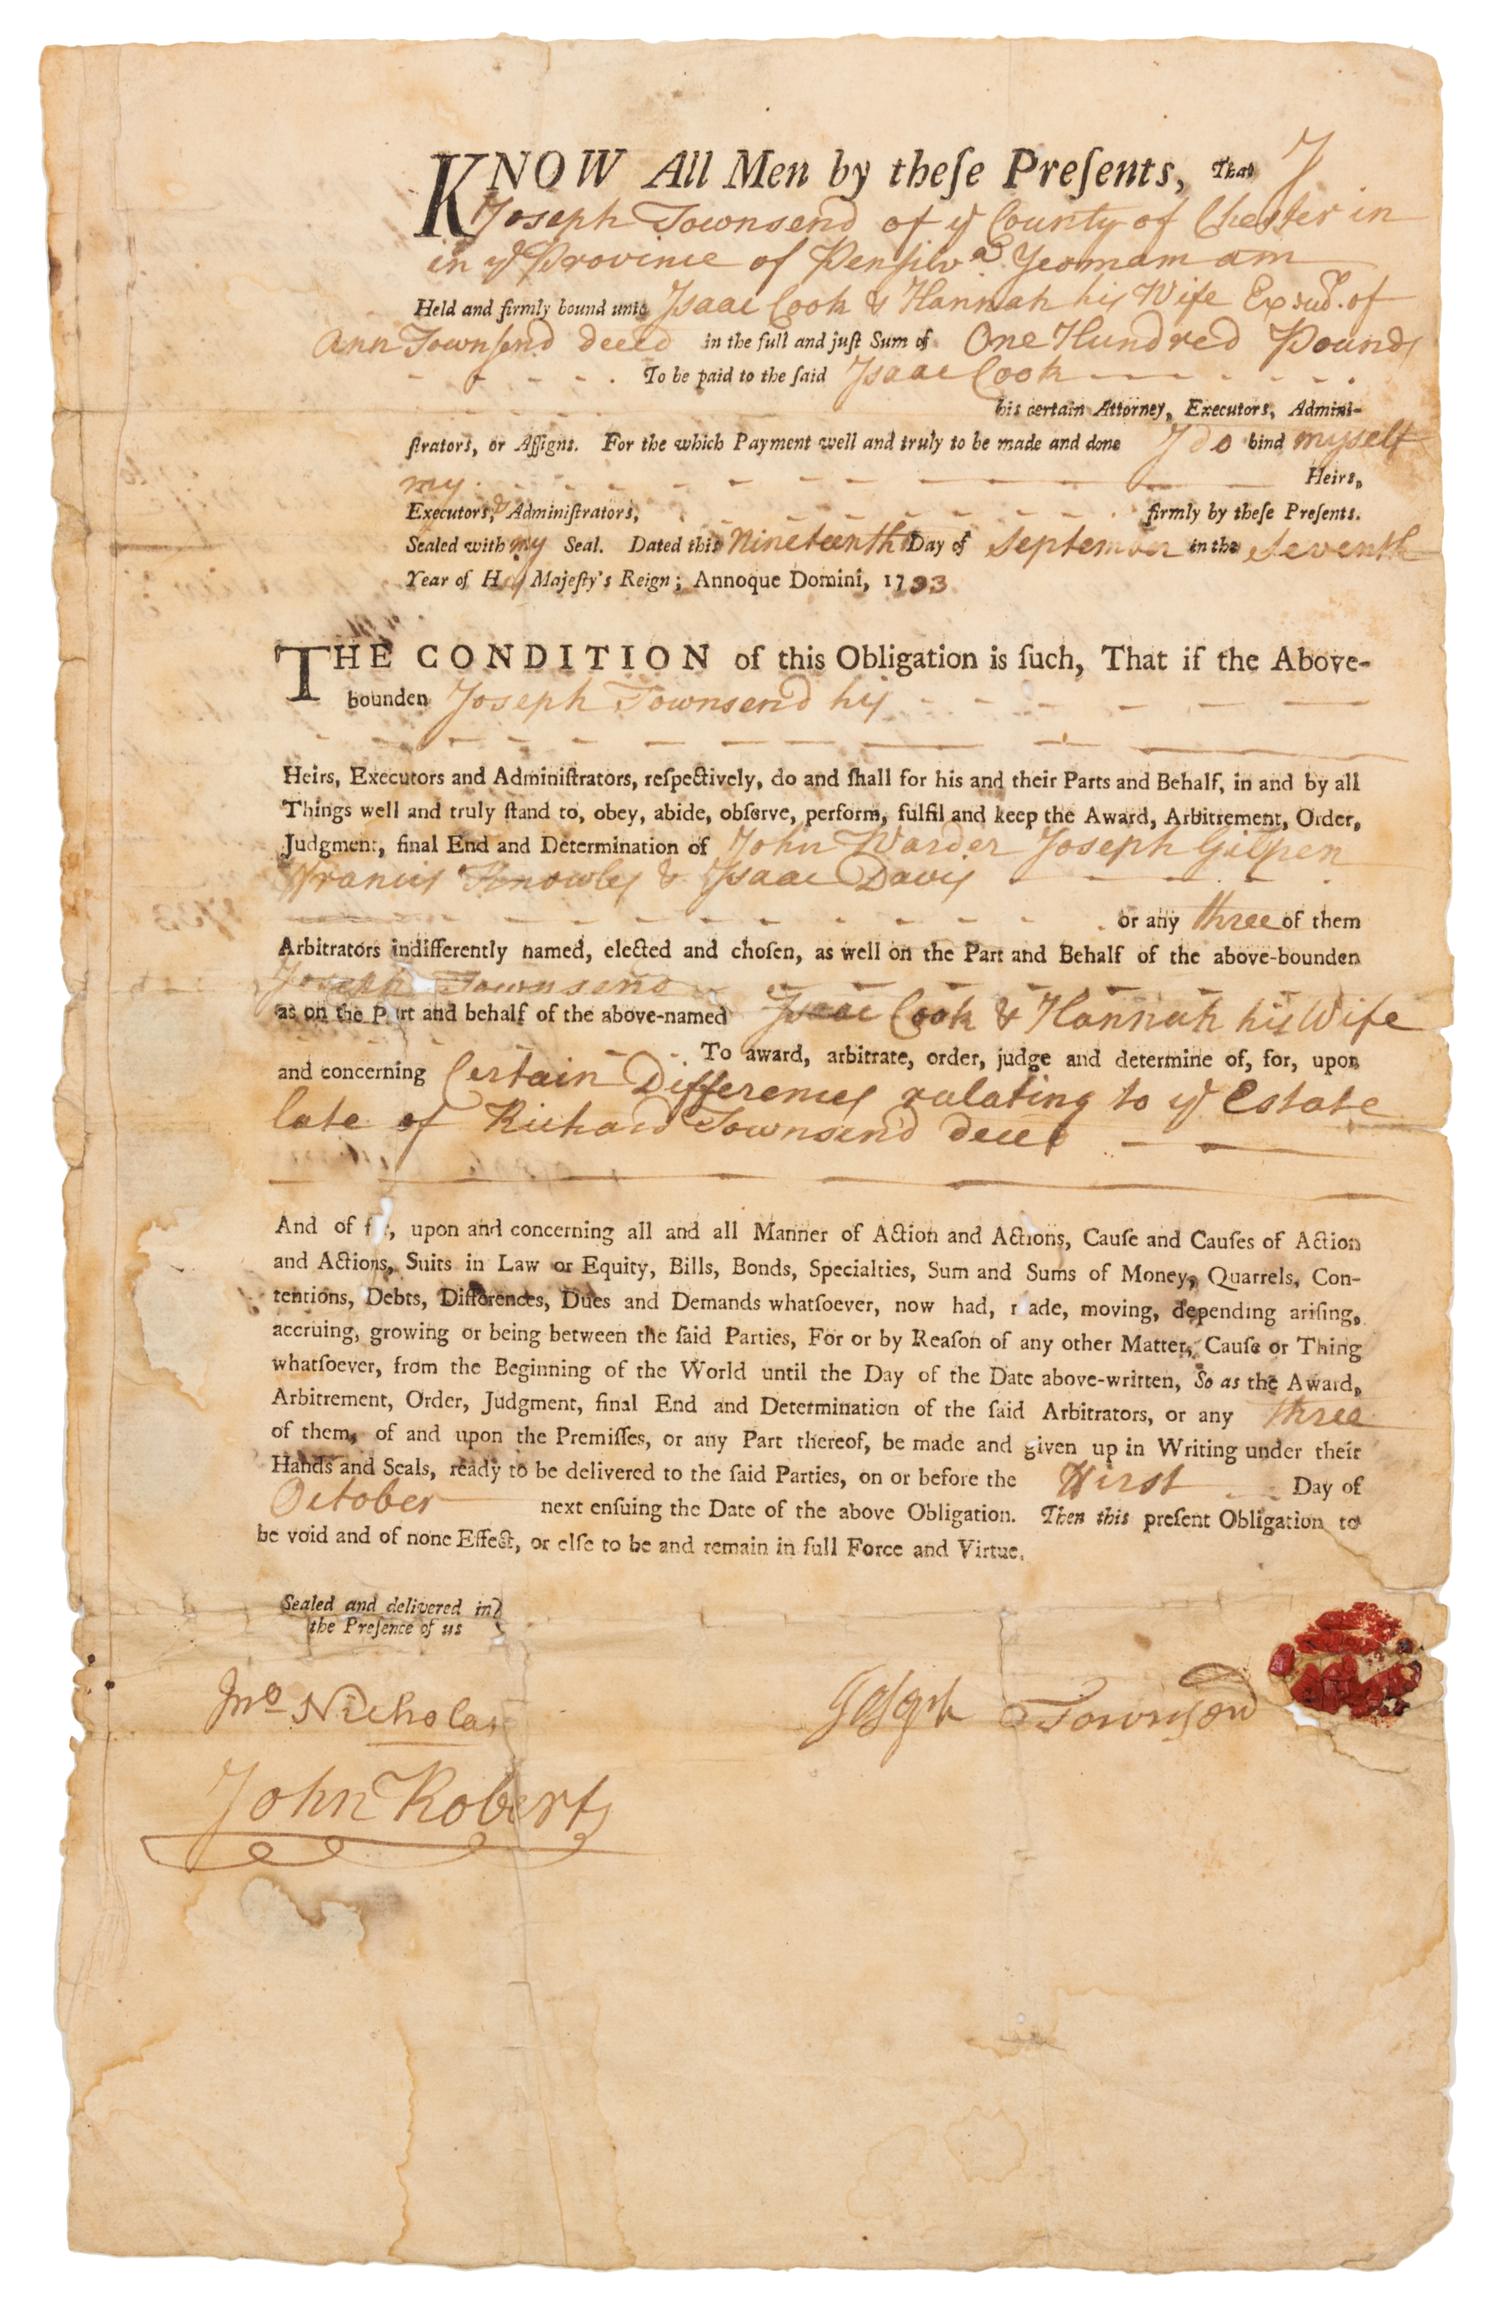 KNOW All Men by theſe Preſents, That I
Joseph Townsend of yͤ County of Chester in
in yͤ Province of Penſilvᵃ Yeomam am
Held and firmly bound unto Isaac Cook & Hannah his Wife of
Ann Townſend Deced in the full and juſt Sum of One Hundred Pounds
To be paid to the ſaid Isaac Cook
his certain Attorney, Executors, Admini-
ſtrators, or Aſſigns. For the which Payment well and truly to be made and done I do bind myself
my Heirs,
Executors, & Adminiſtrators, firmly by theſe Preſents.
Sealed with my Seal. Dated this Nineteenth Day of September in the Seventh
Year of His Majeſty's Reign; Annoque Domini, 1733
THE CONDITION of this Obligation is ſuch, That if the Above-
bounden Joseph Townsend his
Heirs, Executors and Adminiſtrators, reſpectively, do and ſhall for his and their Parts and Behalf, in and by all
Things well and truly ſtand to, obey, abide, obſerve, perform, fulfil and keep the Award, Arbitrement, Order,
Judgment, final End and Determination of John Warder Joseph Gilpen
Francis Knowles & Isaac Davis
or any three of them
Arbitrators indifferently named, elected and choſen, as well on the Part and Behalf of the above-bounden
Joseph Townsend
as on the Part and behalf of the above-named Isaac Cook & Hannah his Wife
To award, arbitrate, order, judge and determine of, for, upon
and concerning Certain Differences relating to yͤ Estate
late of Richard Townsend Deced
And of for, upon and concerning all and all Manner of Action and Actions, Cauſe and Cauſes of Action
and Actions, Suits in Law or Equity, Bills, Bonds, Specialties, Sum and Sums of Money, Quarrels, Con-
tentions, Debts, Differences, Dues and Demands whatſoever, now had, made, moving, depending ariſing,
accruing, growing or being between the ſaid Parties, For or by Reaſon of any other Matter, Cauſe or Thing
whatſoever, from the Beginning of the World until the Day of the Date above-written, So as the Award,
Arbitrement, Order, Judgment, final End and Determination of the ſaid Arbitrators, or any three
of them, of and upon the Premiſſes, or any Part thereof, be made and given up in Writing under their
Hands and Seals, ready to be delivered to the ſaid Parties, on or before the First Day of
October next enſuing the Date of the above Obligation. Then this preſent Obligation to
be void and of none Effect, or elſe to be and remain in full Force and Virtue.
Sealed and delivered in
the Preſence of us
Jnº Nicholas
Joseph Townsend
John Roberts